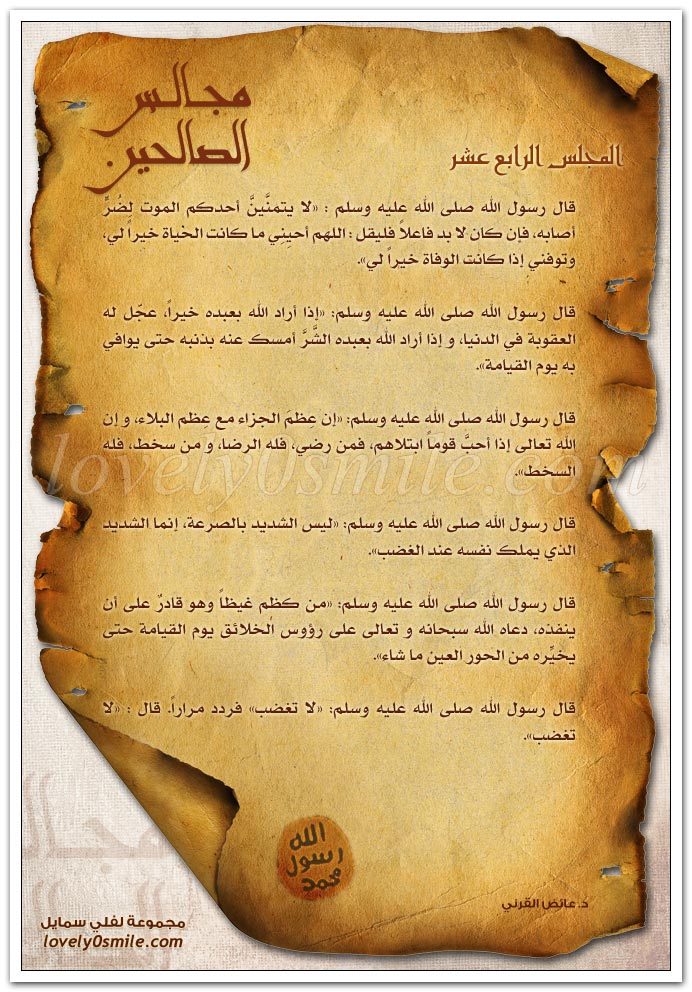 مجالس
الصالحين
المجلس الرابع عشر
قال رسول الله صلى الله عليه وسلم : «لا يتمنَّينَّ أحدكم الموت لضُرٍّ
أصابه، فإن كان لا بد فاعلاً فليقل : اللهم أحيِني ما كانت الحياة خيراً لي،
وتوفني إذا كانت الوفاة خيراً لي».
قال رسول الله صلى الله عليه وسلم: «إذا أراد الله بعبده خيراً، عجّل له
العقوبة في الدنيا، و إذا أراد الله بعبده الشَّرَّ أمسك عنه بذنبه حتى يوافي
به يوم القيامة».
قال رسول الله صلى الله عليه وسلم: «إن عِظمَ الجزاء مع عِظم البلاء، و إن
الله تعالى إذا أحبَّ قوماً ابتلاهم، فمن رضي، فله الرضا، و من سخط، فله
السخط».
قال رسول الله صلى الله عليه وسلم: «ليس الشديد بالصرعة، إنما الشديد
الذي يملك نفسه عند الغضب».
قال رسول الله صلى الله عليه وسلم: «من كظم غيظاً وهو قادرٌ على أن
ينفذه، دعاه الله سبحانه و تعالى على رؤوس الخلائق يوم القيامة حتى
يخيِّره من الحور العين ما شاء».
قال رسول الله صلى الله عليه وسلم: «لا تغضب» فردد مراراً. قال : «لا
تغضب».
الله
رسول
محمد
د.عائض القرني
مجموعة لفلي سمايل
lovely0smile.com
lovely0smile.com